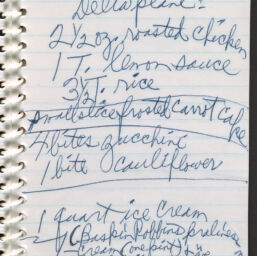 Delta plane:
2 1/2 oz. roasted chicken
1 T. lemon sauce
3 1/2 T. rice
small slice frosted carrot cake
4 bites zucchini
1 bite cauliflower
1 quart ice cream
(Baskin Robbins pralines
cream (one pint)